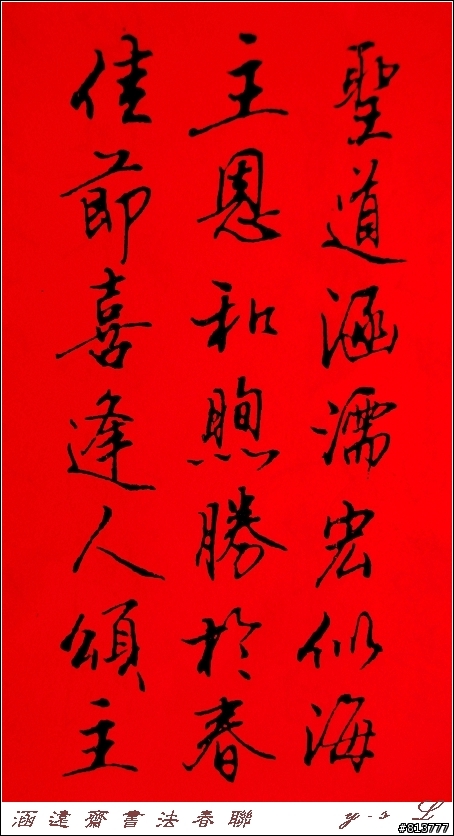 聖道涵濡宏似海
主恩和煦勝於春
佳節喜逢人頌主
涵遠齋書法春聯 y-s L
#013777